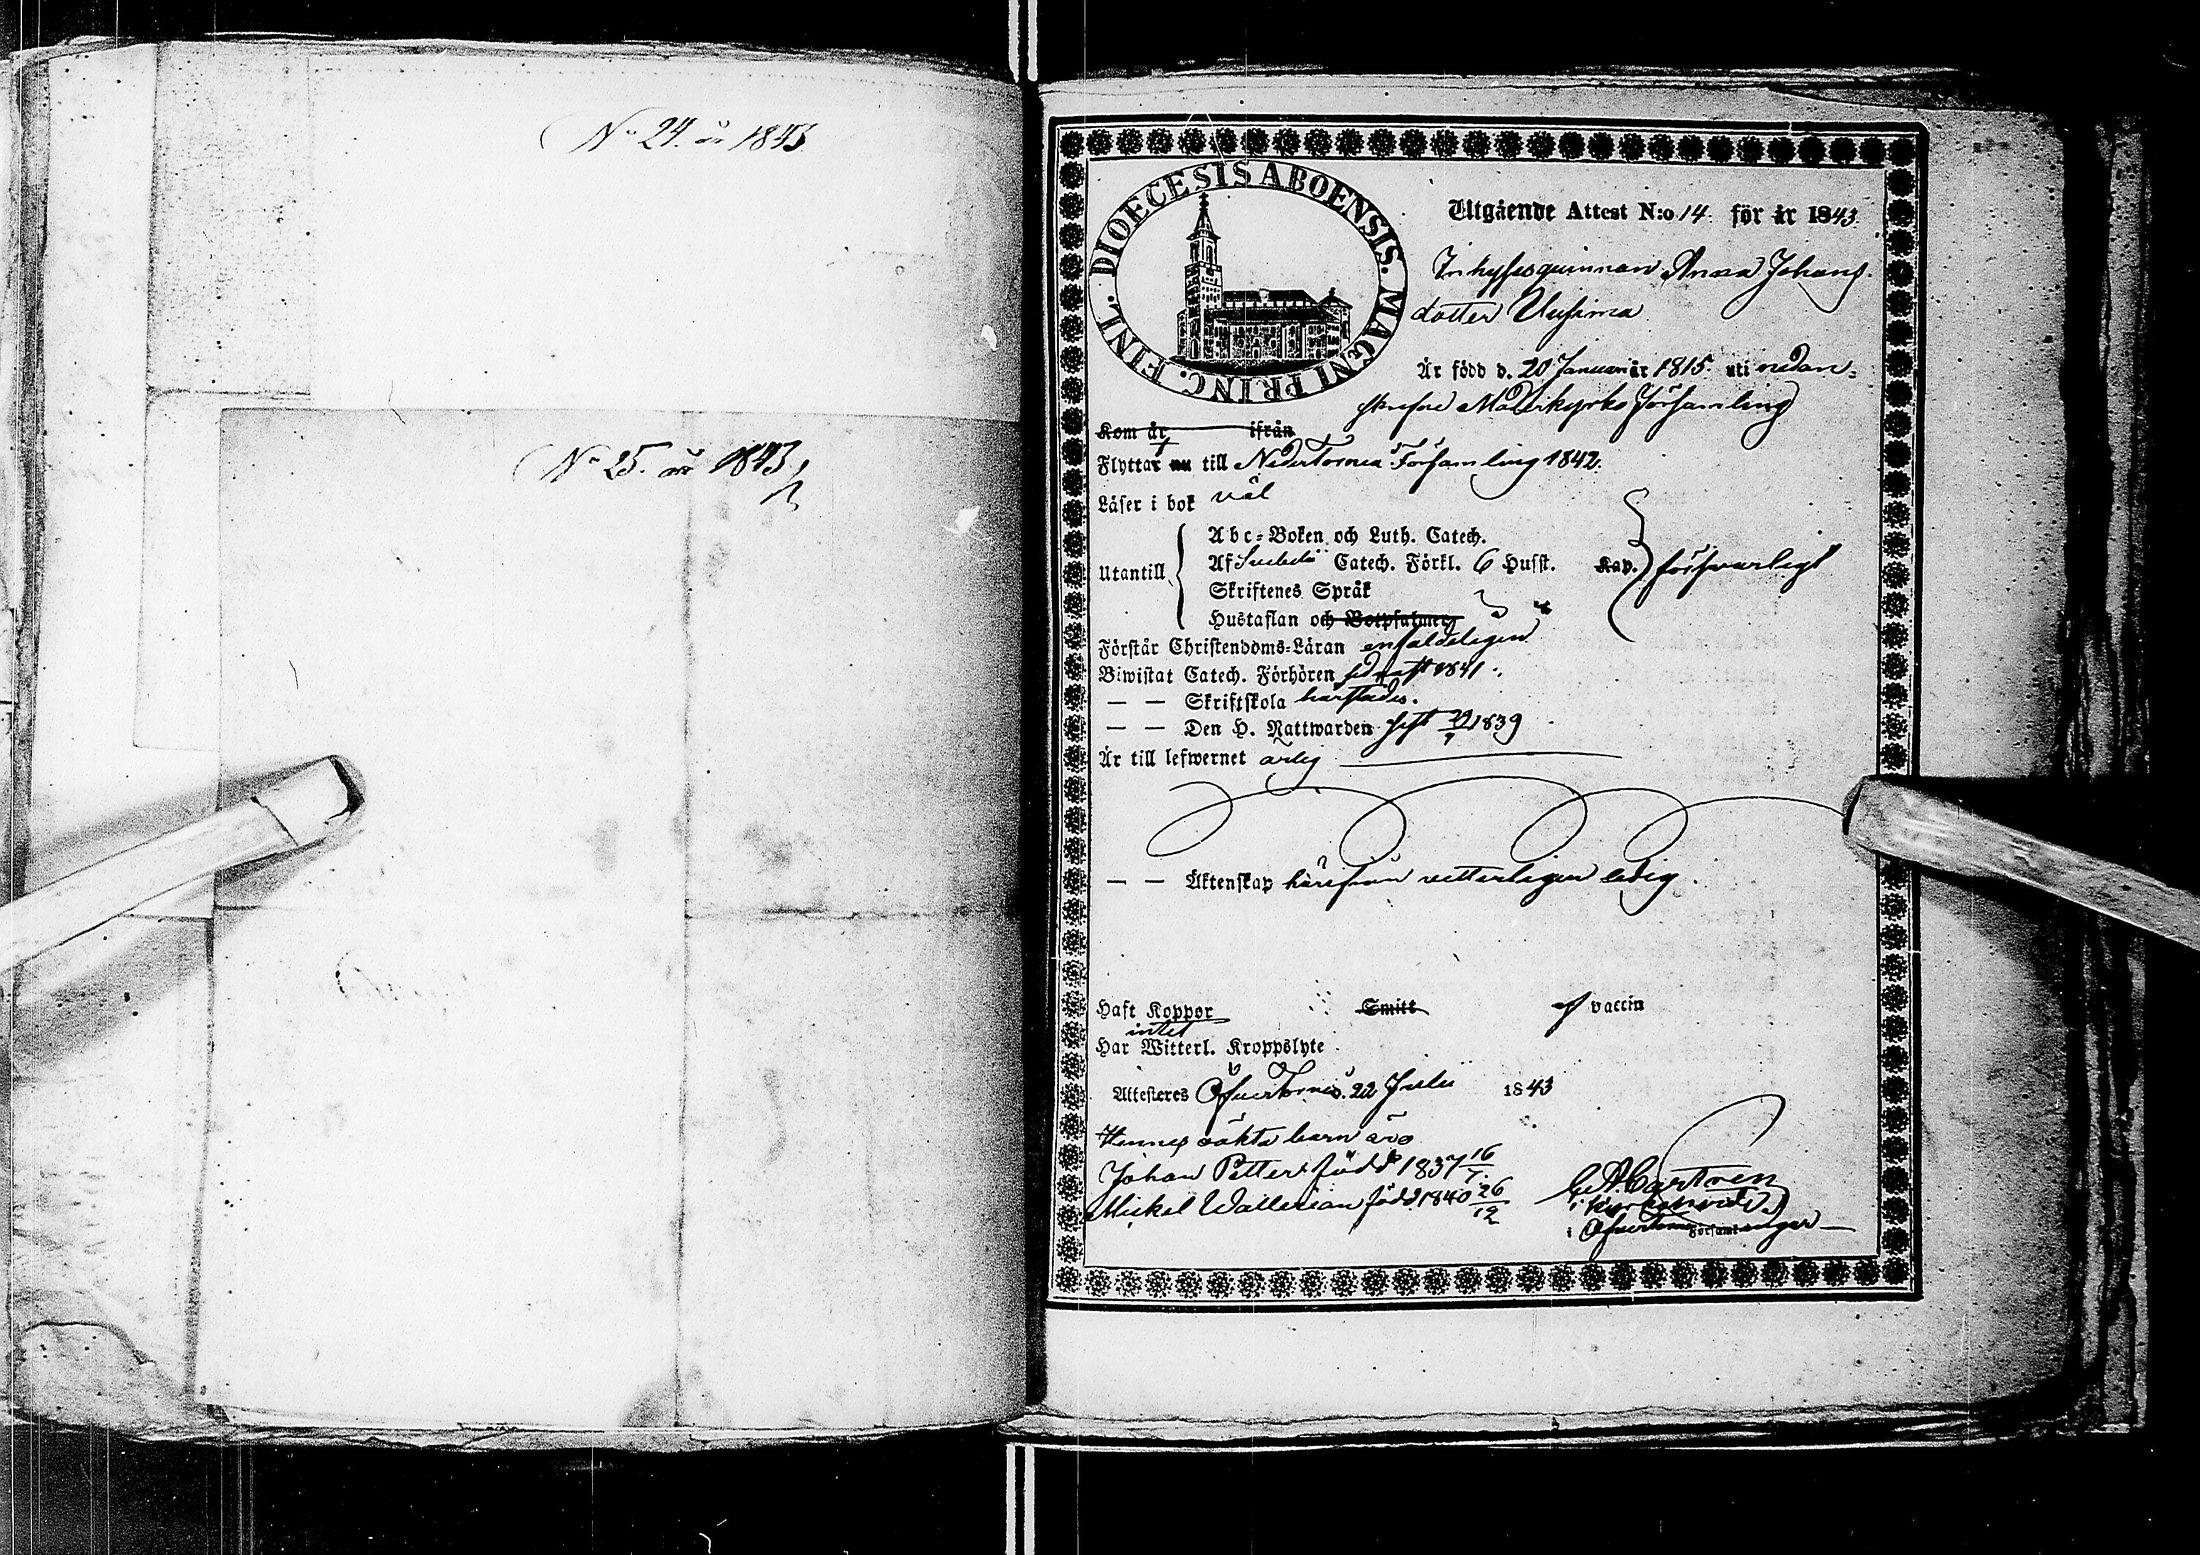 No 24. år 1843
No 25. år 1843
DIOECESIS ABOENSIS. MAGNI PRINC. FINL.
Utgående Attest N:o 14. för år 1843.
Inhysesquinnan Anna Johans-
dotter Uusima
Är född d. 20 Januari är 1815. uti nedan-
skrefne Moderkyrko Församling
Kom år ifrån
Flyttar nu till NederTornea Församling 1842.
Läser i bok väl
Abc-Boken och Luth. Catech.
Utantill Af Svebelii Catech. Förkl. 6 Hufst. Kap. försvarligt
Skriftenes Språk
Hustaflan och Botpsalmer
Förstår Christendoms-Läran enfaldeligen
Biwistat Catech. Förhören sednast 1841.
— — Skriftskola harstädes.
— — Den H. Nattwarden sist 29/9 1839
Är till lefwernet ärlig
— — Äktenskap härifrån vetterligen ledig.
Haft Koppor Smitt af vaccin
intet
Har Witterl. Kroppslyte
Attesteres ÖfverTorneå. 22 Julii 1843
Hennes oäkta barn äro
Johan Petter född 1837 16/7.
Mickel Wallerian född 1840 26/12
C. A. Castren
i Kyrkoherde
i Öfvertorneå Församlingar